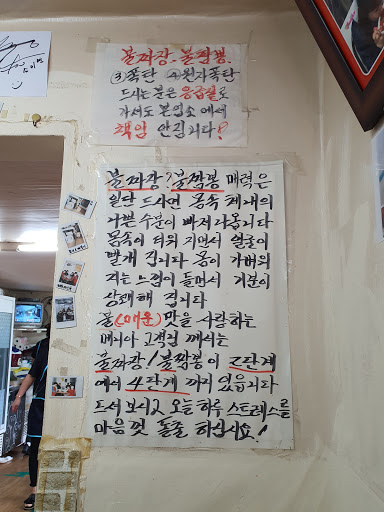 불짜장. 불짬뽕.
③폭탄 ④원자폭탄
드시는 분은 응급실로
가셔도 본업소에서
책임 안집니다?
불짜장! 불짬뽕 매력은
일단 드시면 몸속 체내의
나쁜 수분이 빠져 나옵니다
몸속이 더워 지면서 얼굴이
빨개 집니다 몸이 가벼워
지는 느낌이 들면서 기분이
상쾌해 집니다
불(매운) 맛을 사랑하는
매니아 고객님 께서는
불짜장! 불짬뽕이 2단계
에서 4단계 까지 있습니다
드셔 보시고 오늘하루 스트레스를
마음껏 돌출 하십시요!